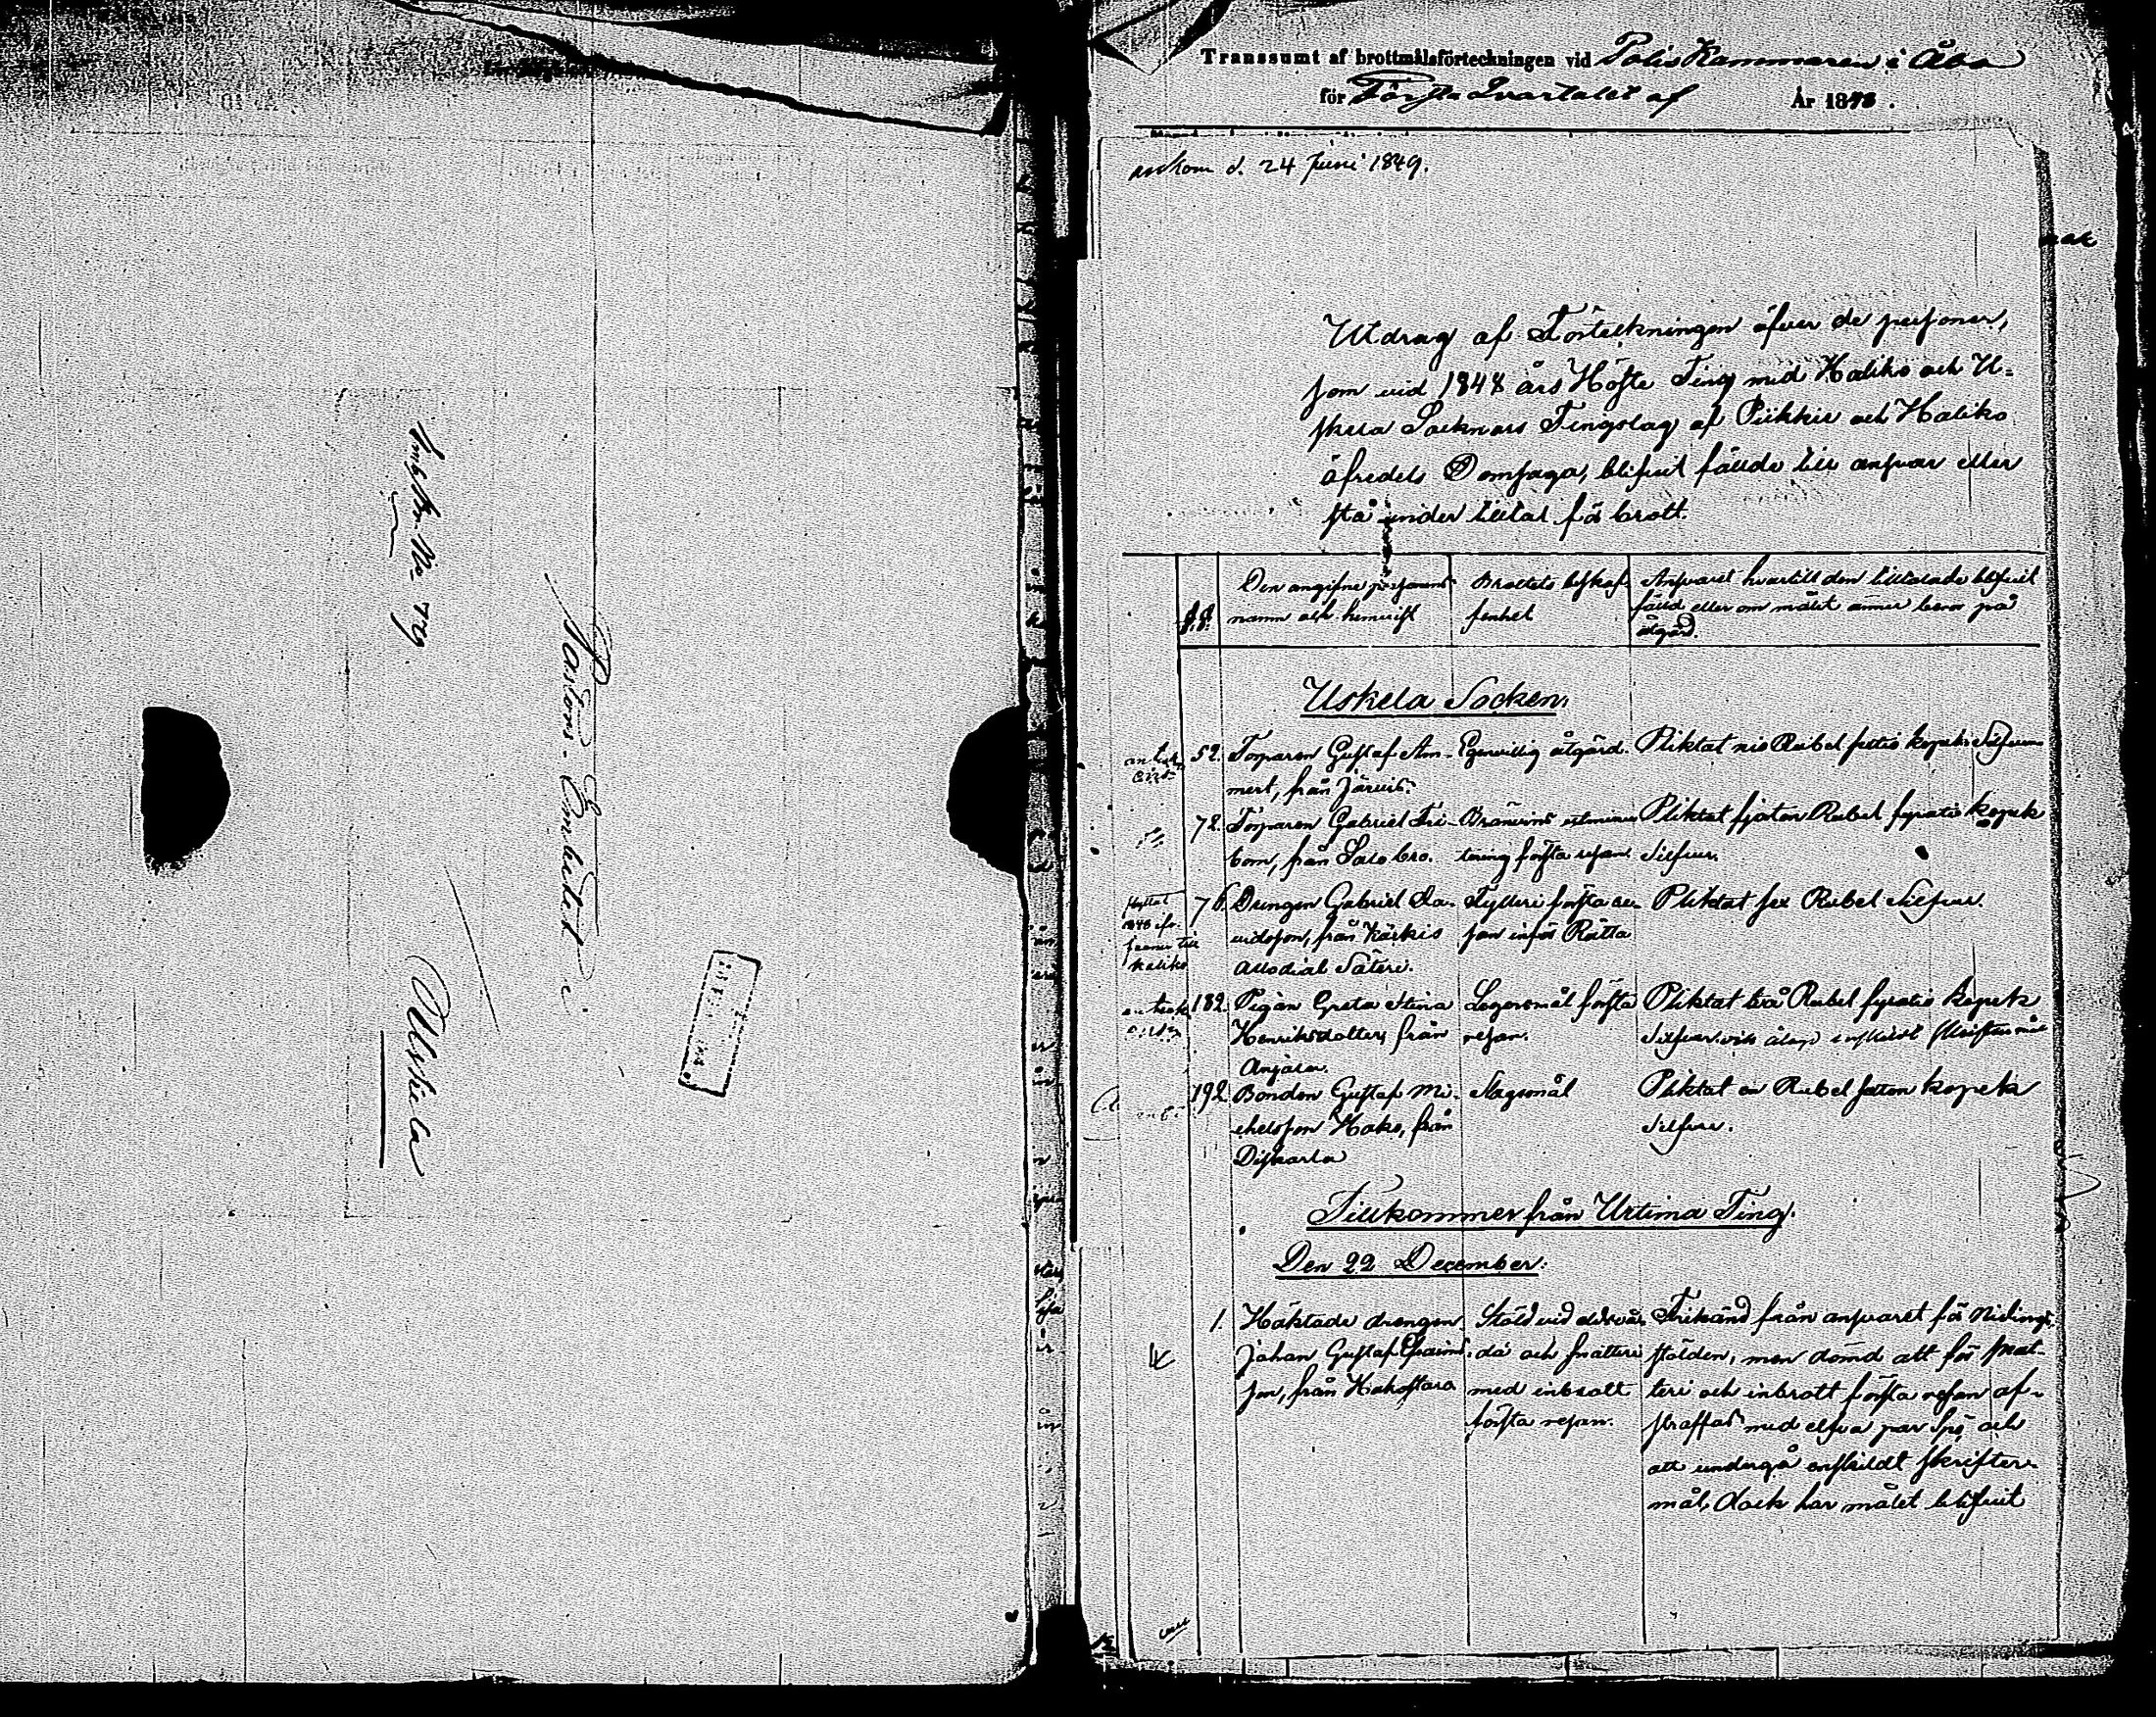 Pastors-Embetet
Uskela
Transsumt af brottmålsförteckningen vid Polis Kammaren i Åbo
för Första Qvartalet af År 1878.
ankom d. 24 Juni 1849.
Utdrag af Förteckningen öfver de personer,
som vid 1848 års Höste Ting med Haliko och U-
skela Socknars Tingslag af Piikkie och Haliko
öfredels Domsaga, blifvit fällde till ansvar eller
stå under tilltal för brott.
§.§.
Den angifne personens
namn och hemvist
Brottets beskaf-
fenhet
Ansvaret hvartill den tilltalade blifvit
fälld eller om målet ännu beror på
åtgärd.
Uskela Socken.
52. Torparen Gustaf Am- Egenvillig åtgärd. Pliktat nio Rubel sextio kopek Silfver
mert, från Järvis.
72. Torparen Gabriel Fri- Bränvins utminu- Pliktat sjuton Rubel fyratio kopek
bom, från Salo bro. tering första resan. Silfver.
flyttat
1848
till
Haliko
76. Drengen Gabriel Da- Fylleri första re- Pliktat sex Rubel Silfver.
vidsson, från Kärkis san inför Rätta
allodial Säteri.
182. Pigan Greta Stina Lägersmål första Pliktat två Rubel fyratio kopek
Henriksdotter, från resan. Silfver och enskildt skriftermål
Anjala.
192. Bonden Gustaf Mi- Slagsmål Pliktat en Rubel kopek
chelsson Hako, från Silfver.
Tillkommer från Urtima Ting.
Den 22 December.
1. Häktade drengen Stöld vid eldsvå- Frikänd från ansvaret för nidings
Johan Gustaf Efraims- da och snatteri stölden, men dömd att för snat-
son, från Hakostaro med inbrott teri och inbrott första resan af-
första resan. straffas med elfva par Spö och
att undergå enskildt skrifter-
mål, dock har målet blifvit